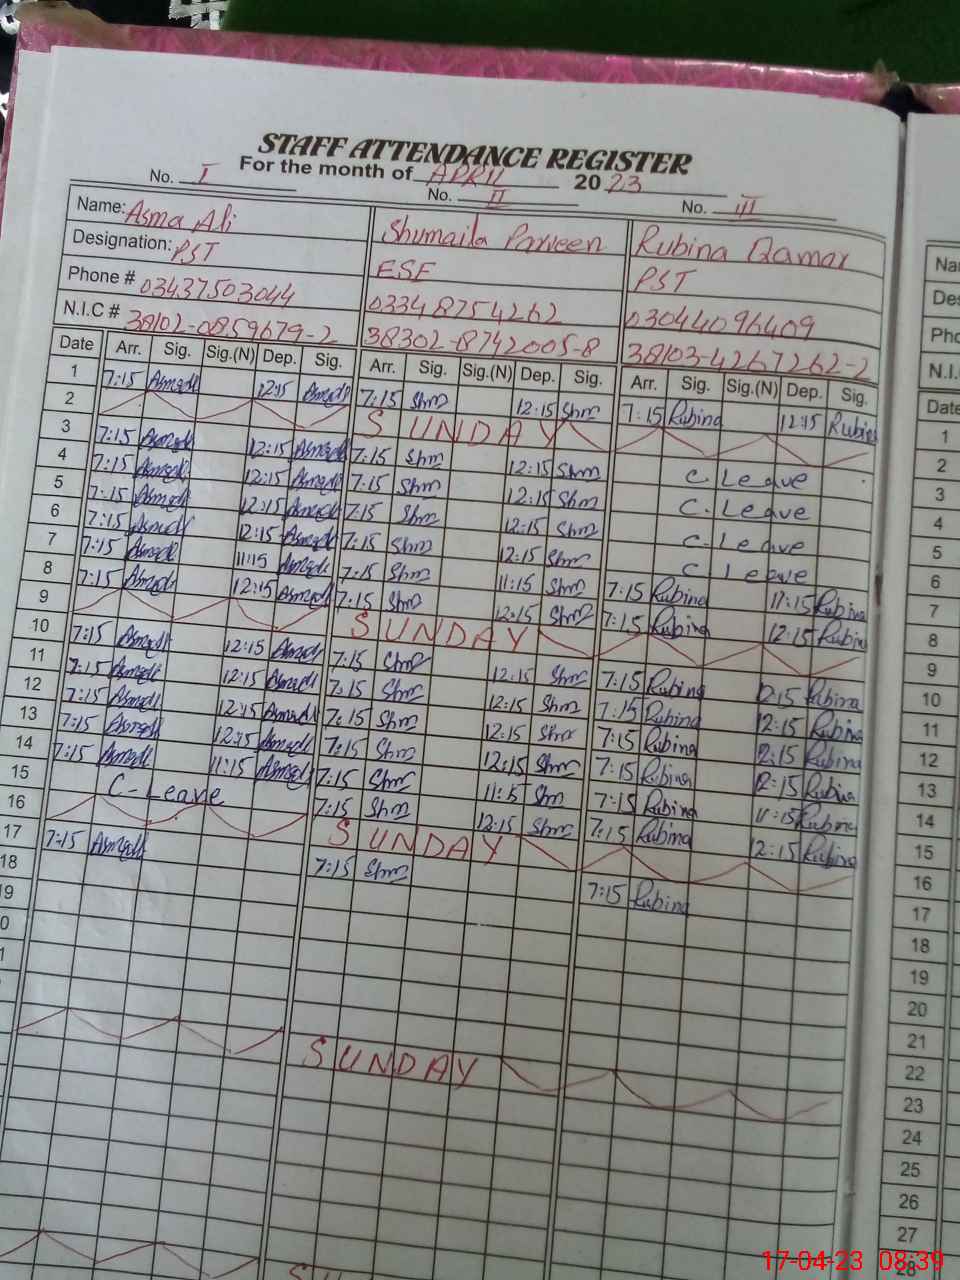 STAFF ATTENDANCE REGISTER
For the month of APRIL 2023
No. I No. II No. III
Name: Asma Ali Shumaila Parveen Rubina Qamar
Designation: PST ESE PST
Phone # 03437503044 03348754262 03044096409
N.I.C # 38102-0859679-2 38302-8742005-8 38103-4267262-2
Date Arr. Sig. Sig.(N) Dep. Sig. Arr. Sig. Sig.(N) Dep. Sig. Arr. Sig. Sig.(N) Dep. Sig.
1 7:15 Asmadl 12:15 Asmadl 7:15 Shm 12:15 Shm 7:15 Rubina 12:15 Rubina
2 SUNDAY
3 7:15 Asmadl 12:15 Asmadl 7:15 Shm 12:15 Shm C. Leave
4 7:15 Asmadl 12:15 Asmadl 7:15 Shm 12:15 Shm C. Leave
5 7:15 Asmadl 12:15 Asmadl 7:15 Shm 12:15 Shm C. Leave
6 7:15 Asmadl 12:15 Asmadl 7:15 Shm 12:15 Shm C Leave
7 7:15 Asmadl 11:15 Asmadl 7:15 Shm 11:15 Shm 7:15 Rubina 11:15 Rubina
8 7:15 Asmadl 12:15 Asmadl 7:15 Shm 12:15 Shm 7:15 Rubina 12:15 Rubina
9 SUNDAY
10 7:15 Asmadl 12:15 Asmadl 7:15 Shm 12:15 Shm 7:15 Rubina 12:15 Rubina
11 7:15 Asmadl 12:15 Asmadl 7:15 Shm 12:15 Shm 7:15 Rubina 12:15 Rubina
12 7:15 Asmadl 12:15 Asmadl 7:15 Shm 12:15 Shm 7:15 Rubina 12:15 Rubina
13 7:15 Asmadl 12:15 Asmadl 7:15 Shm 12:15 Shm 7:15 Rubina 12:15 Rubina
14 7:15 Asmadl 11:15 Asmadl 7:15 Shm 11:15 Shm 7:15 Rubina 11:15 Rubina
15 C-Leave 7:15 Shm 12:15 Shm 7:15 Rubina 12:15 Rubina
16 SUNDAY
17 7:15 Asmadl 7:15 Shm 7:15 Rubina
18
9
0
1
SUNDAY
Na
De
Pho
N.I.
Date
1
2
3
4
5
6
7
8
9
10
11
12
13
14
15
16
17
18
19
20
21
22
23
24
25
26
27
28
17-04-23 08:39